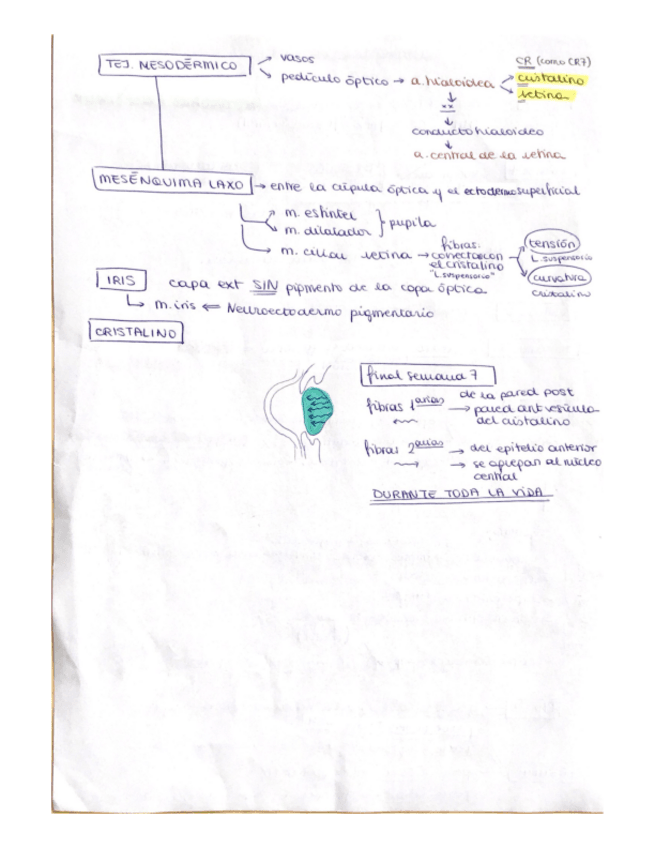 TEJ. MESODÉRMICO → vasos
→ pedículo óptico → a. hialoidea → cristalino
→ retina
CR (como CR7)
↓
**
↓
conducto hialoideo
↓
a. central de la retina
MESÉNQUIMA LAXO → entre la cúpula óptica y el ectodermo superficial
m. esfínter
m. dilatador } pupila
m. ciliar retina → fibras: conectas con el cristalino "L. suspensorio"
tensión
L. suspensorio
curvatura
cristalino
IRIS capa ext SIN pigmento de la copa óptica
↳ m. iris ⇐ Neuroectodermo pigmentario
CRISTALINO
final semana 7
fibras 1arias → de la pared post
pared ant vesícula
del cristalino
fibras 2arias → del epitelio anterior
→ se agregan al núcleo
central
DURANTE TODA LA VIDA